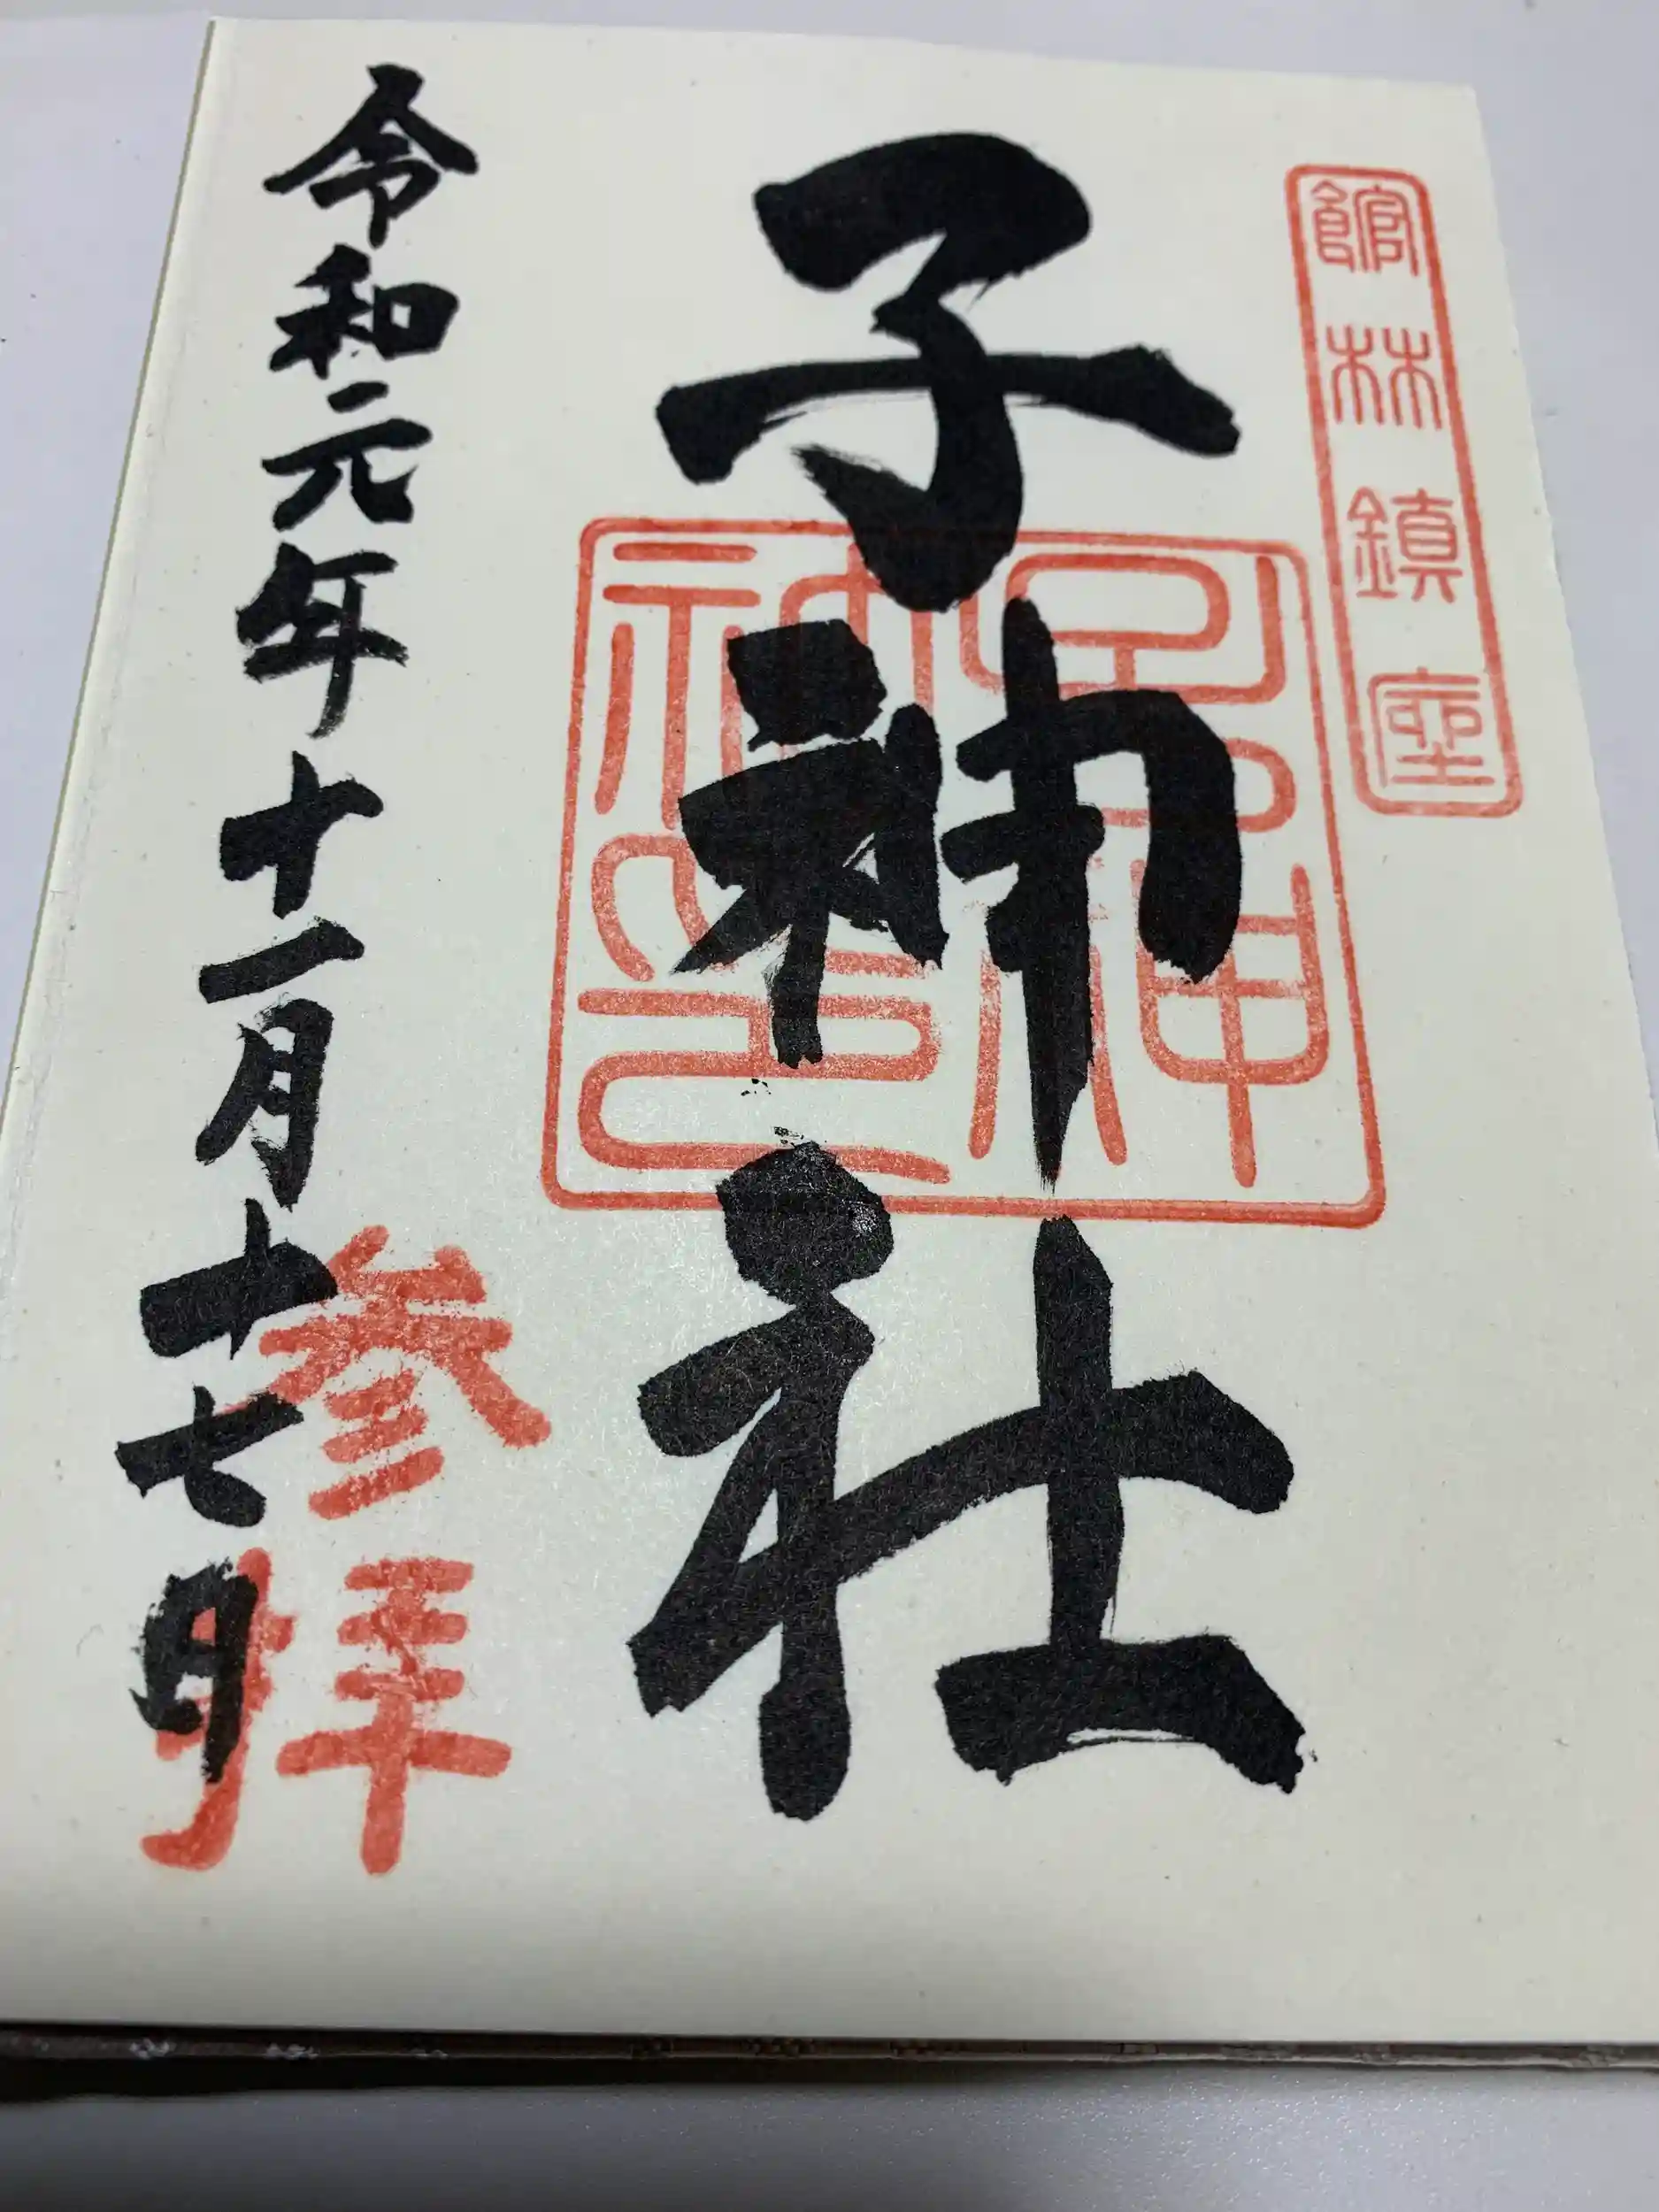 館林鎮座
子神社
子之神
神印
参拝
令和元年十一月十七日